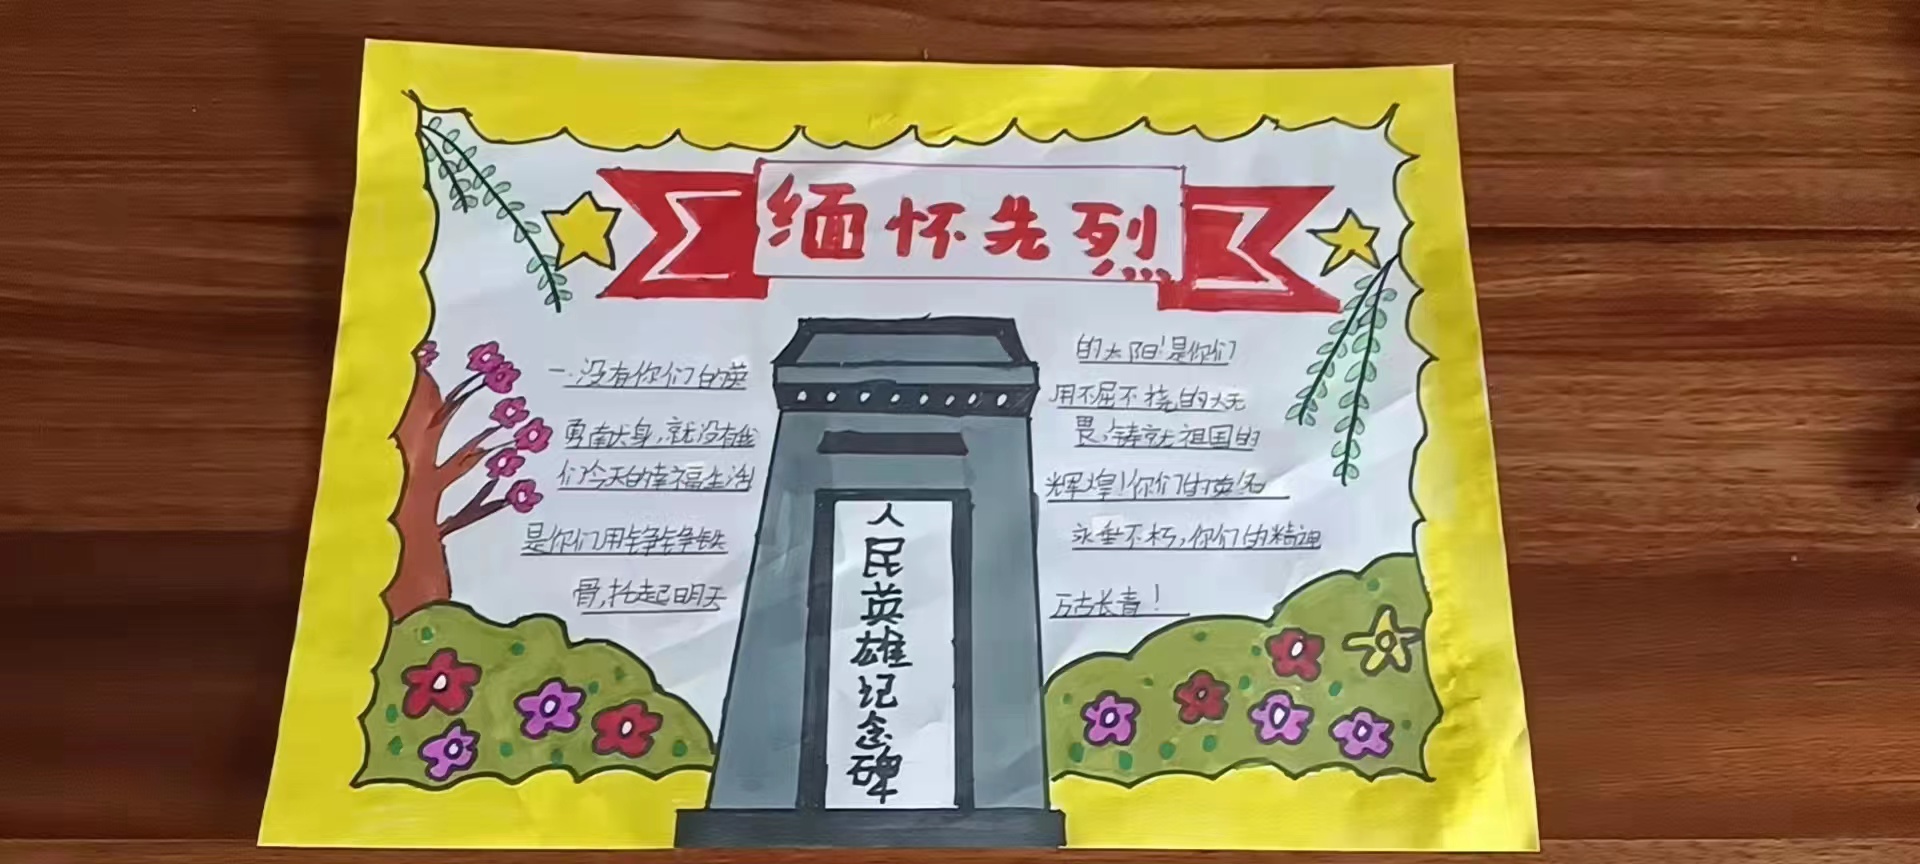 缅怀先烈
一.没有你们的英
勇献身,就没有我
们今天的幸福生活
是你们用铮铮铁
骨,托起明天
的太阳!是你们
用不屈不挠的大无
畏,铸就祖国的
辉煌!你们的英名
永垂不朽,你们的精神
万古长青!
人民英雄纪念碑